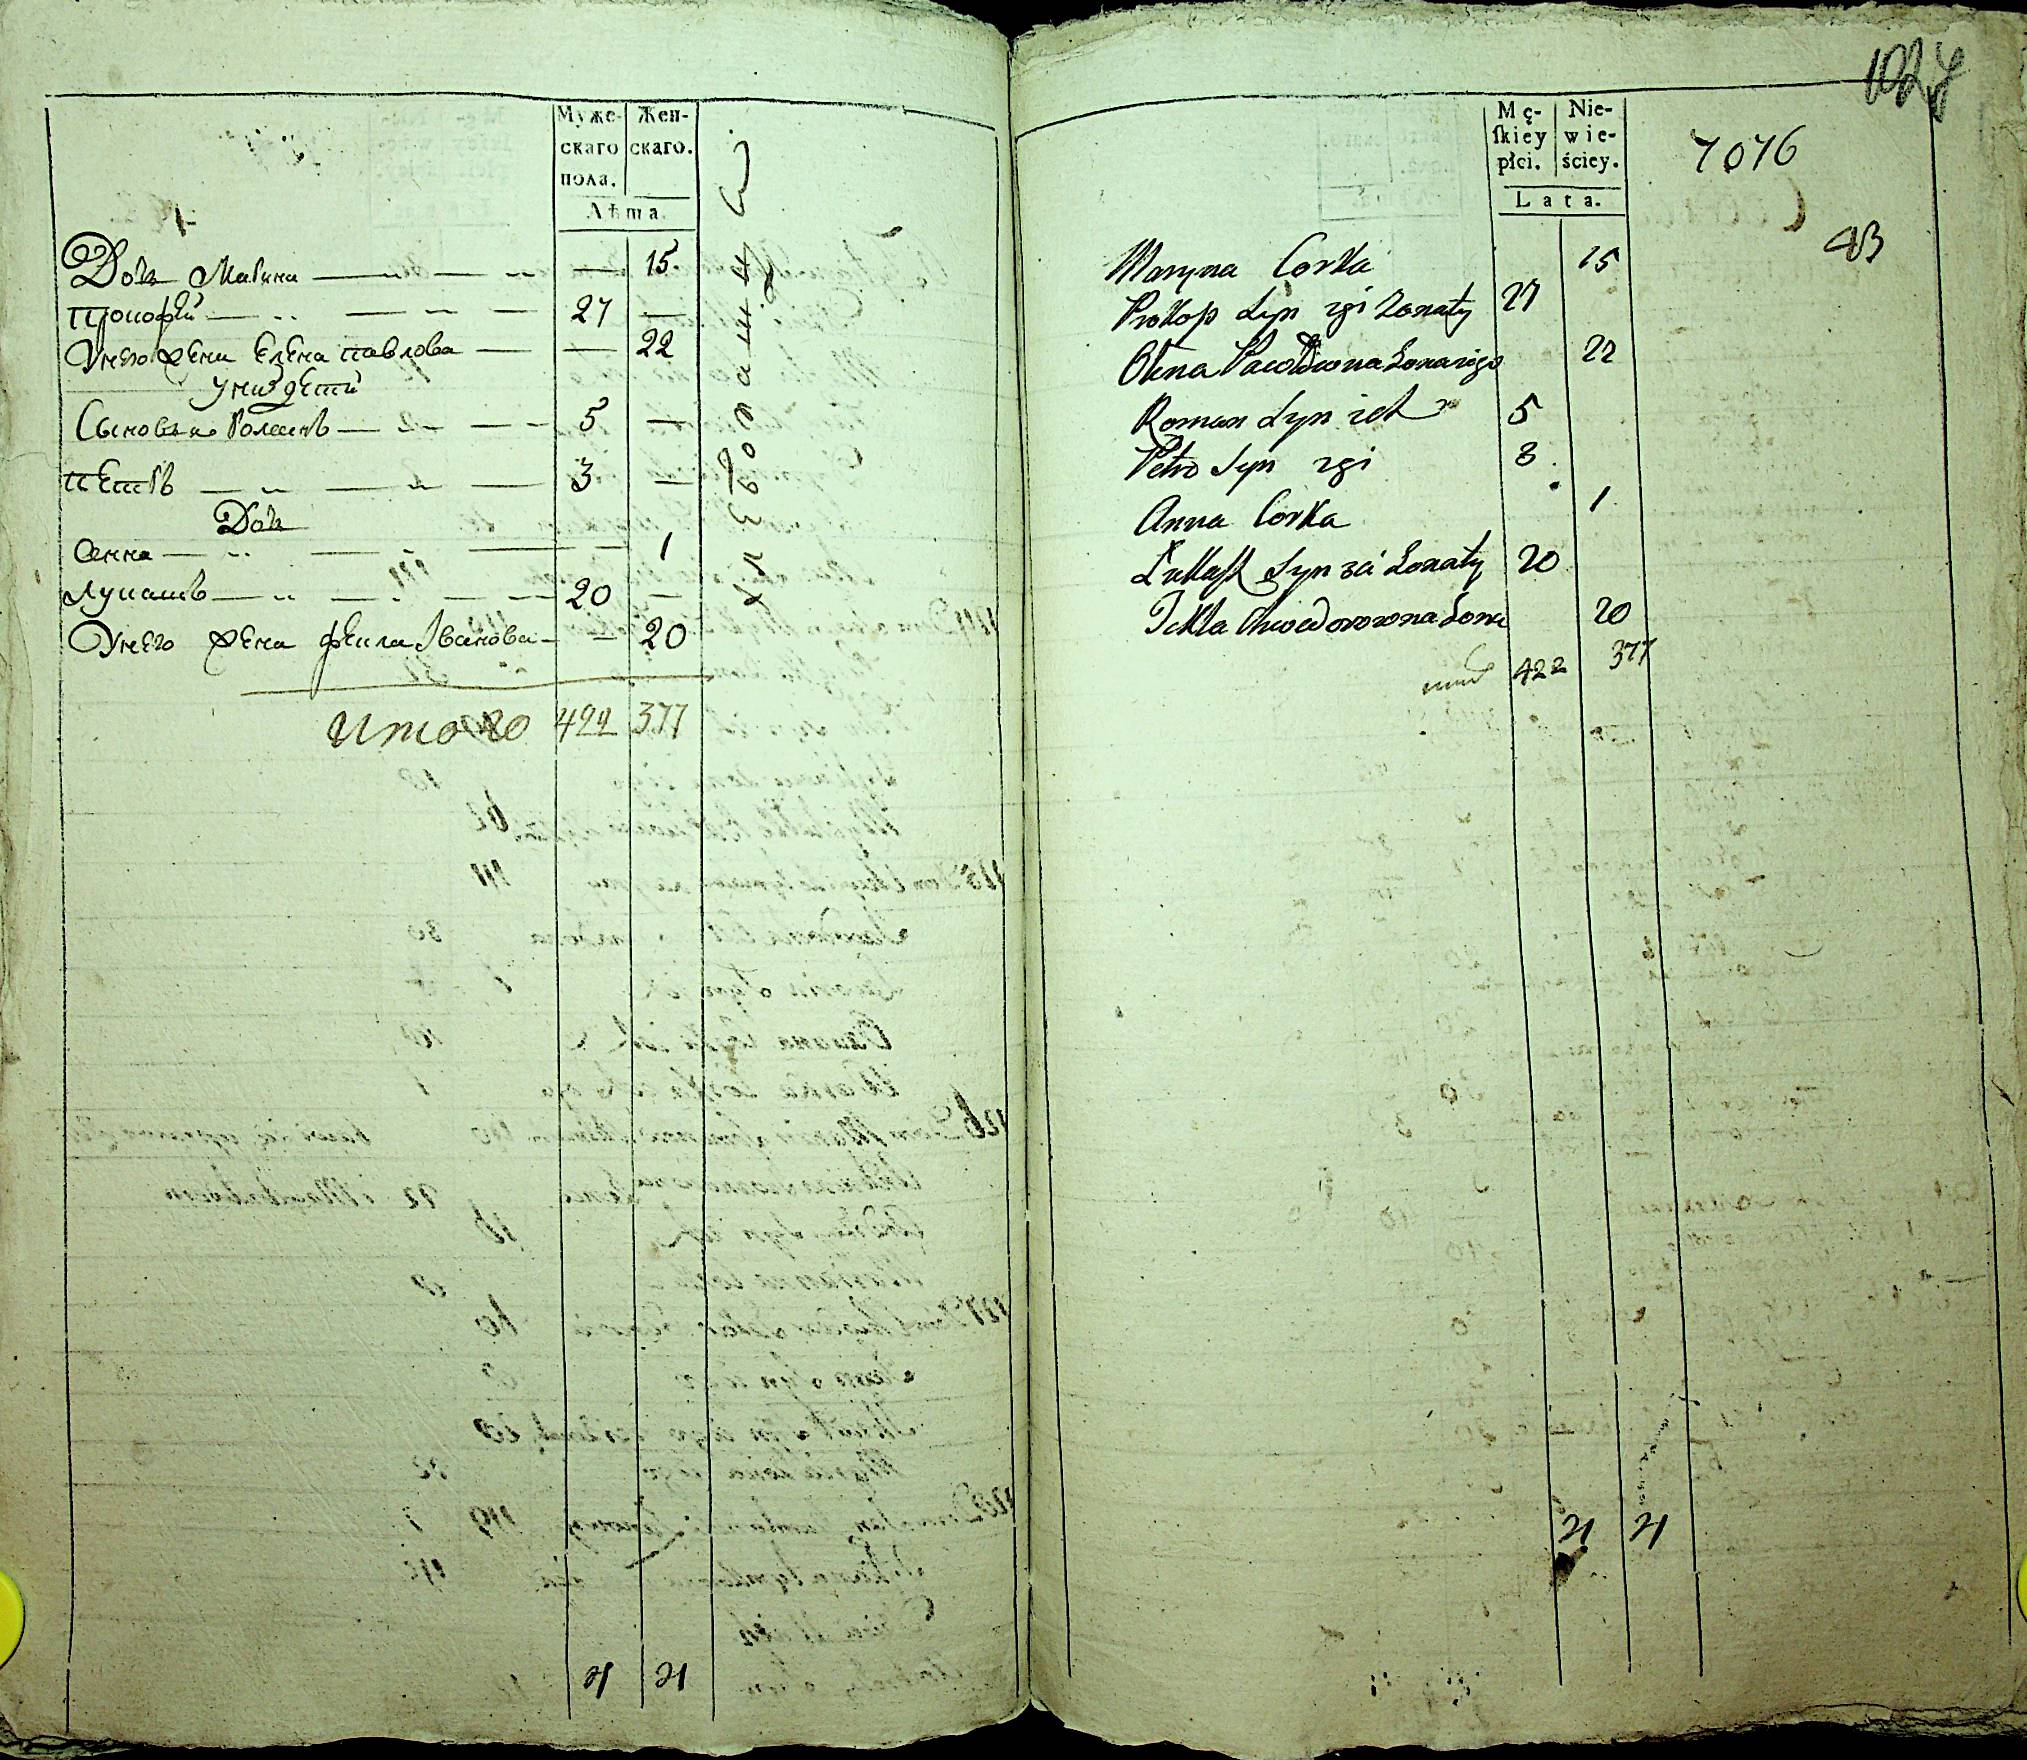 Муже-
скаго
пола.
Жен-
скаго.
Лѣта.
Дочь Марина 15.
Прокофей 27
У него жена Елена Павлова 22
У них дети
Сыновья Романъ 5
Петръ 3
Дочь
Анна 1
Лукашъ 20
У него жена Фекла Иванова 20
Итого 422 377
21 21
Mę-
ſkiey
płci.
Nie-
wie-
ściey.
Lata.
7076
43
Maryna Corka 15
Prokop Syn 2gi Żonaty 27
Olena Pawłowna Żona iego 22
Roman Syn ich 5
Petro Syn 2gi 3
Anna Corka 1
Łukasz Syn 3ci Żonaty 20
Tekla Chwedorowna Żona 20
422 377
21 21